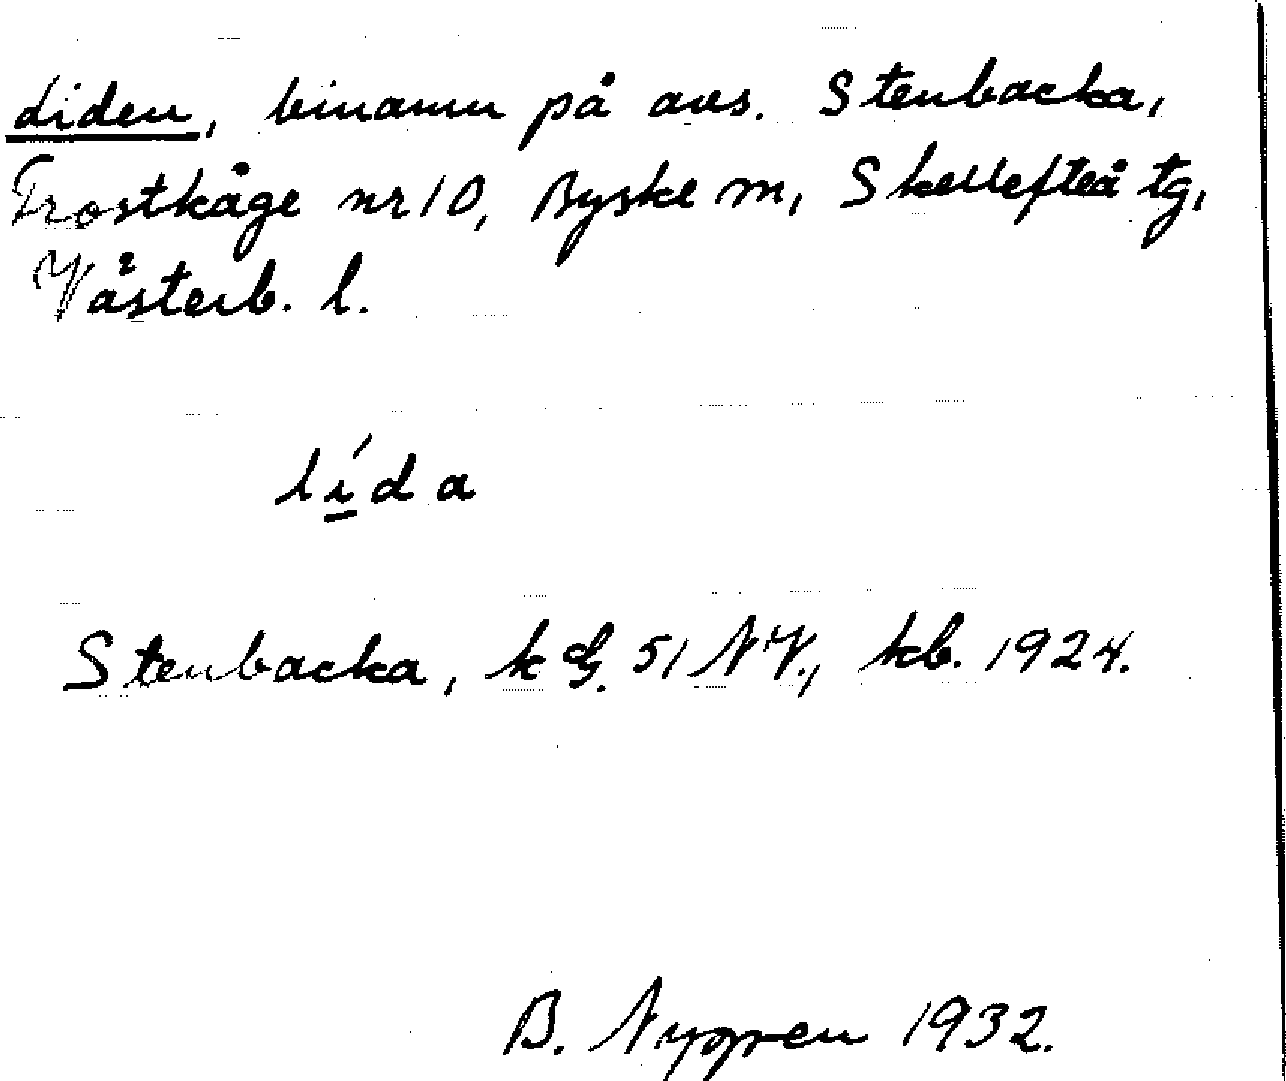 Liden, binamn på avs. Stenbacka,
Frostkåge nr 10, Byske sn, Skellefteå tg,
Västerb. l.
lída
Stenbacka, k G. 51 NV., kb. 1924.
B. Nygren 1932.